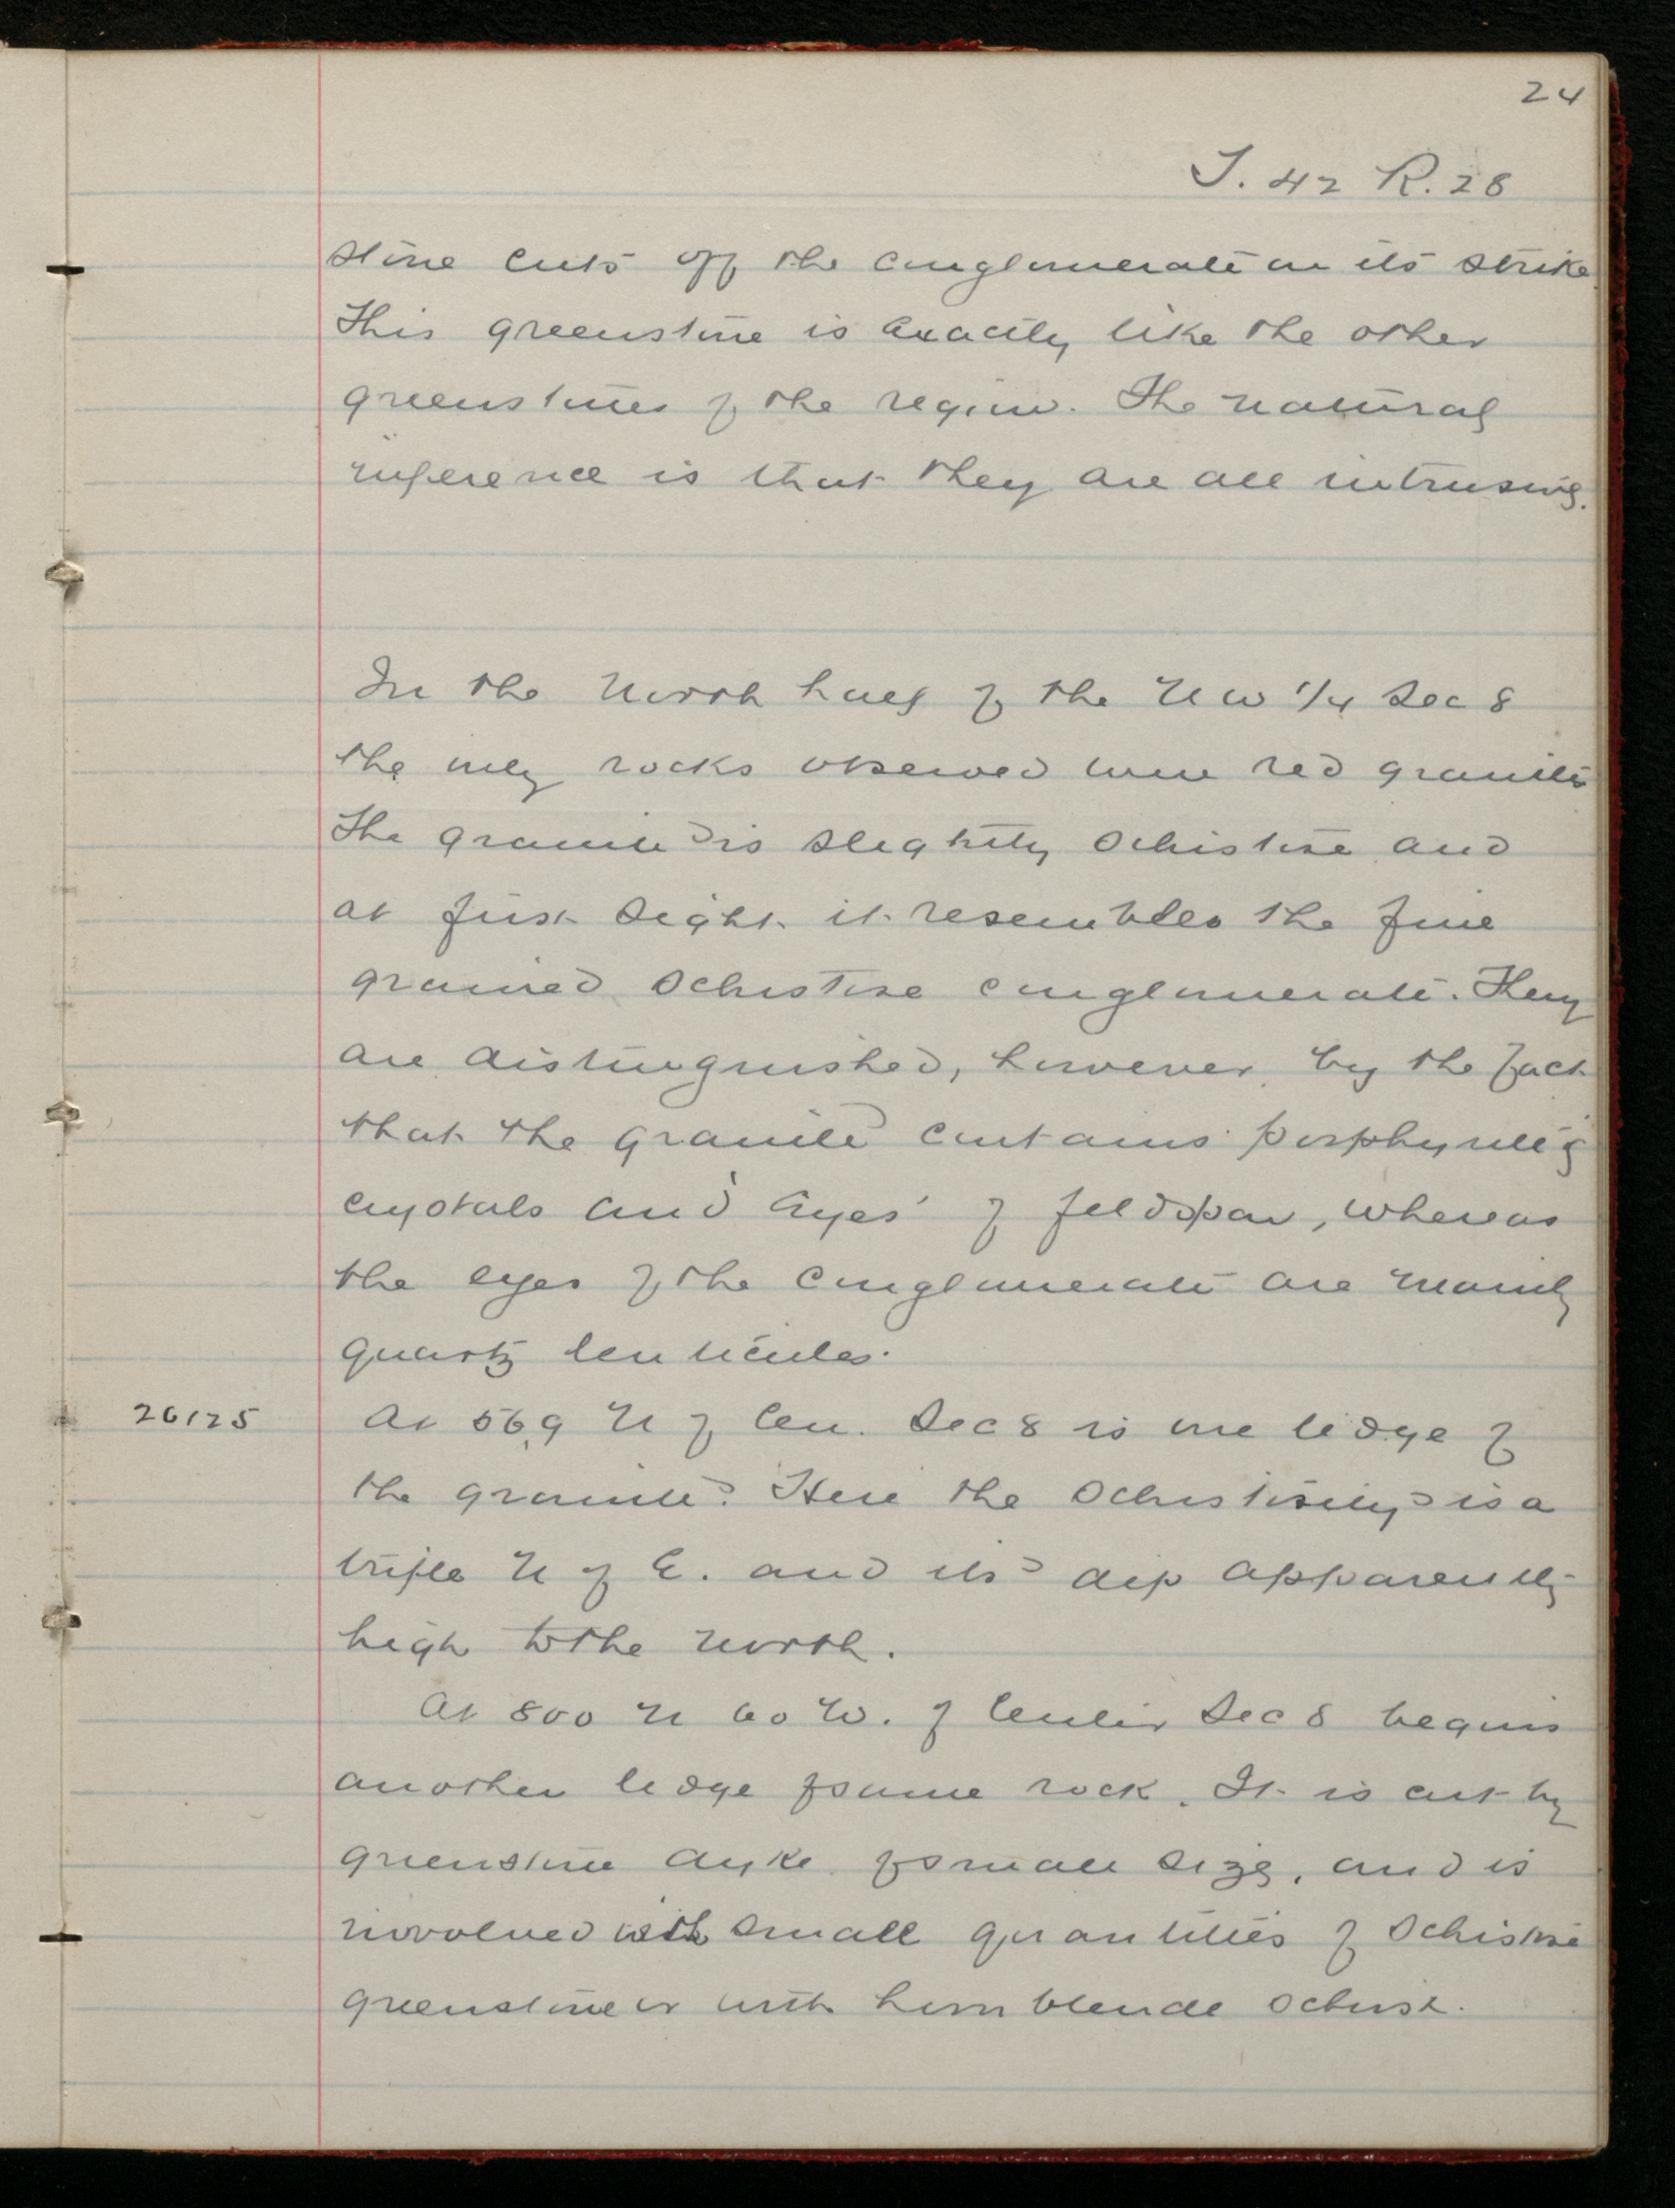 24
T. 42 R. 28
stone cuts off the conglomerate on its strike.
This greenstone is exactly like the other
greenstones of the region. The natural
inference is that they are all intrusive.
In the North half of the NW 1/4 Sec 8
the only rocks observed were red granite
The granite is slightly schistose and
at first sight it resembles the fine
grained schistose conglomerate. They
are distinguished, however, by the fact
that the granite contains porphyritic
crystals and 'eyes' of feldspar, whereas
the eyes of the conglomerate are mainly
quartz lenticules.
26125 At 569 N of Cen. Sec 8 is one ledge of
the granite. Here the schistosity is a
trifle N of E. and its dip apparently
high to the north.
At 800 N 60 W. of Center Sec 8 begins
another ledge of same rock. It is cut by
greenstone dyke of small size, and is
involved with small quantities of schistose
greenstone or with hornblende schist.